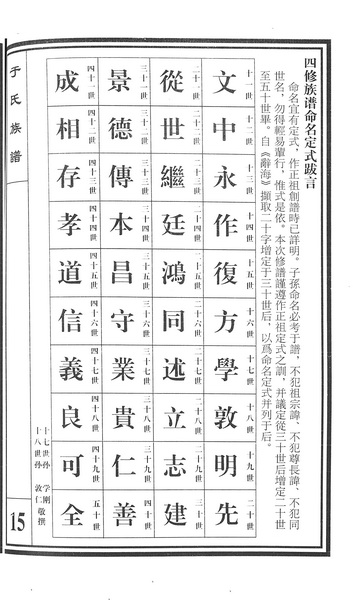 四修族谱命名定式跋言
命名宜有定式，作正祖創譜時已詳明。子孫命名必考于譜，不犯祖宗諱、不犯尊長諱、不犯同
世名，勿得輕易輩行，惟式是依。本次修譜謹遵作正祖定式之訓，并議定從三十世后增定二十世
至五十世畢。自《辭海》擷取二十字增定于三十世后，以爲命名定式并列于后。
十一世 十二世 十三世 十四世 十五世 十六世 十七世 十八世 十九世 二十世
文 中 永 作 復 方 學 敦 明 先
二十一世 二十二世 二十三世 二十四世 二十五世 二十六世 二十七世 二十八世 二十九世 三十世
從 世 繼 廷 鴻 同 述 立 志 建
三十一世 三十二世 三十三世 三十四世 三十五世 三十六世 三十七世 三十八世 三十九世 四十世
景 德 傳 本 昌 守 業 貴 仁 善
四十一世 四十二世 四十三世 四十四世 四十五世 四十六世 四十七世 四十八世 四十九世 五十世
成 相 存 孝 道 信 義 良 可 全
十七世孫 学剛
十八世孫 敦仁 敬撰
于氏族譜
15